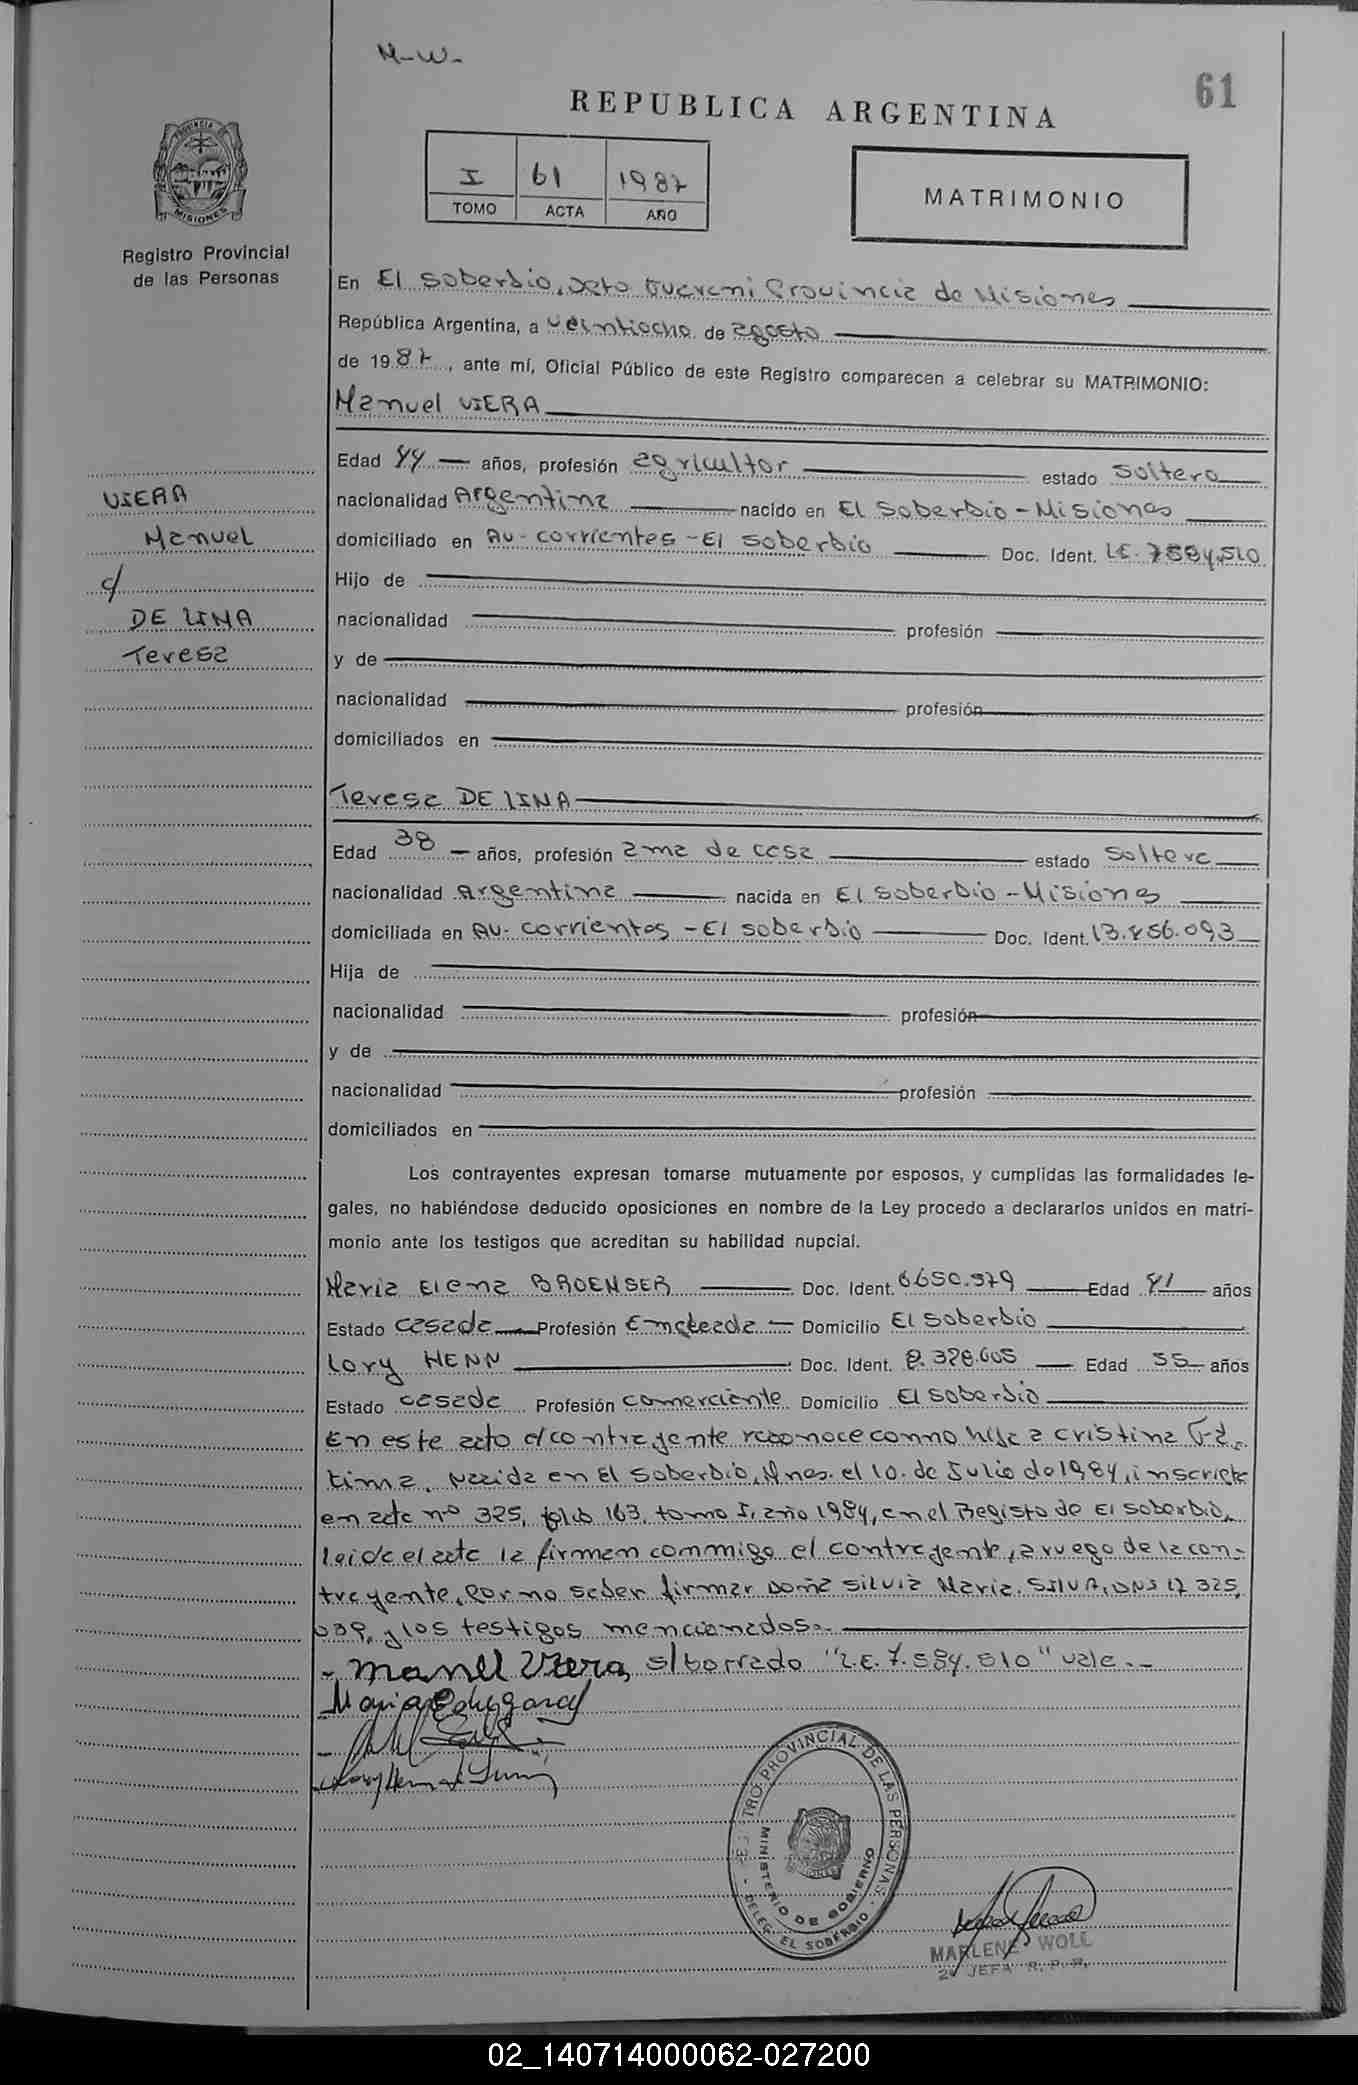 M-W-
61
REPUBLICA ARGENTINA
I 61 1987
TOMO ACTA AÑO
MATRIMONIO
PROVINCIA DE
MISIONES
Registro Provincial
de las Personas
En El Soberbio, Dpto Guarani Provincia de Misiones
República Argentina, a veintiocho de agosto
de 1987, ante mí, Oficial Público de este Registro comparecen a celebrar su MATRIMONIO:
Manuel VIERA
Edad 44 años, profesión agricultor estado soltero
nacionalidad Argentina nacido en El Soberbio - Misiones
domiciliado en Av. corrientes - El soberbio Doc. Ident. L.E. 7.584.510
Hijo de
nacionalidad profesión
y de
nacionalidad profesión
domiciliados en
VIERA
Manuel
c/
DE LINA
Teresa
Teresa DE LINA
Edad 38 años, profesión ama de casa estado soltera
nacionalidad Argentina nacida en El soberbio - Misiones
domiciliada en Av. corrientes - El soberbio Doc. Ident. 13.856.093
Hija de
nacionalidad profesión
y de
nacionalidad profesión
domiciliados en
Los contrayentes expresan tomarse mutuamente por esposos, y cumplidas las formalidades le-
gales, no habiéndose deducido oposiciones en nombre de la Ley procedo a declararlos unidos en matri-
monio ante los testigos que acreditan su habilidad nupcial.
Maria Elena Doc. Ident. 6650.979 Edad años
Estado casada Profesión Domicilio El soberbio
Lory HENN Doc. Ident. Edad 55 años
Estado casada Profesión comerciante Domicilio El soberbio
En este acto el contrayente reconoce como hija a cristina Fá-
tima, nacida en El soberbio, Mnes. el 10 de Julio de 1984, inscripta
en acta nº 325, folio 163, tomo I, año 1984, en el Registo de El soberbio,
leida el acta la firman conmigo el contrayente, a ruego de la con-
trayente, por no saber firmar Doña Silvia Maria SILVA, DNI 17 325,
039, y los testigos mencionados.
- Manuel Viera, s/borrado "L.E. 7.584.510" vale.-
REGISTRO PROVINCIAL DE LAS PERSONAS
MINISTERIO DE GOBIERNO
- DELEG. EL SOBERBIO -
MARLENE WOLL
2º JEFA R. P. P.
02_140714000062-027200